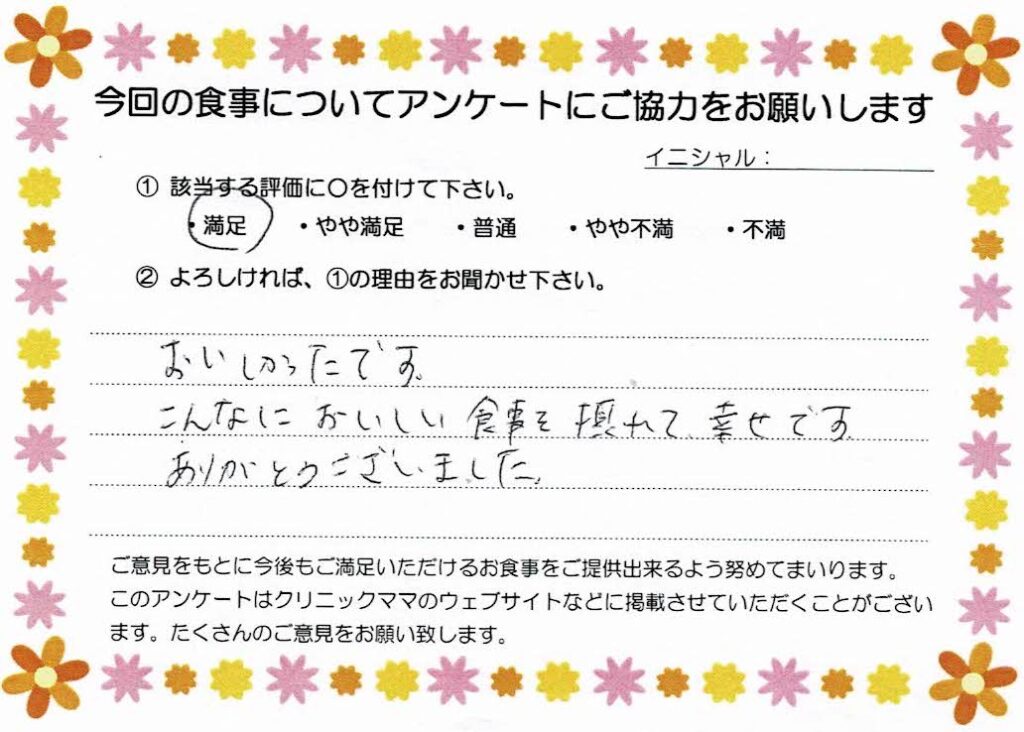 今回の食事についてアンケートにご協力をお願いします
イニシャル：
① 該当する評価に〇を付けて下さい。
・満足 ・やや満足 ・普通 ・やや不満 ・不満
② よろしければ、①の理由をお聞かせ下さい。
おいしかったです。
こんなに おいしい 食事を 摂れて、幸せです。
ありがとうございました。
ご意見をもとに今後もご満足いただけるお食事をご提供出来るよう努めてまいります。
このアンケートはクリニックママのウェブサイトなどに掲載させていただくことがござい
ます。たくさんのご意見をお願い致します。